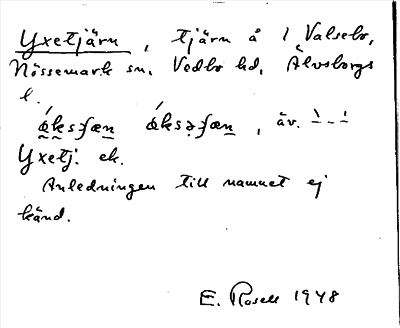 Yxetjärn, tjärn å 1 Valsebo,
Nössemark sn, Vedbo hd, Älvsborgs
l.
, äv.
Yxetj. ek.
Anledningen till namnet ej
känd.
E. Rosell 1948